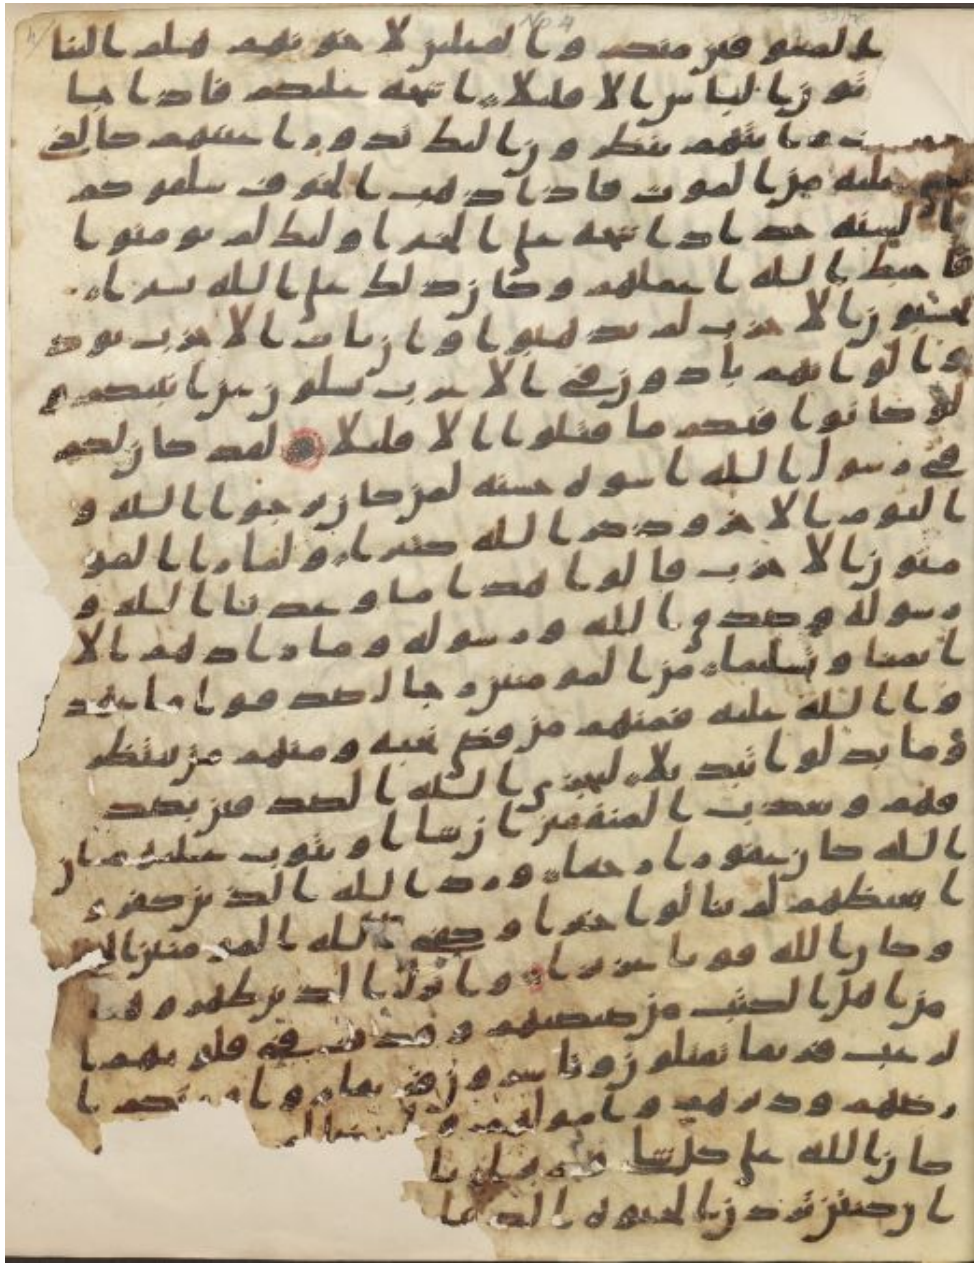 المعوقين منكم والقيلين لاخونهم هلم الينا
تون الباس الا قليلا اشحة عليكم فاذا جا
رايتهم ينظرون اليك تدور اعينهم كالذ
عليه من الموت فاذا ذهب الخوف سلقوكم
بالسنة حداد اشحة على الخير اوليك لم يومنوا
فاحبط الله اعملهم وكان ذلك على الله يسيرا
يحسبون الاحزب لم يذهبوا وان يات الاحزب يود
وا لو انهم بادون في الاعرب يسلون عن انبيكم و
لو كانوا فيكم ما قتلوا الا قليلا لقد كان لكم
في رسول الله اسوة حسنة لمن كان يرجوا الله و
اليوم الاخر وذكر الله كثيرا ولما را المو
منون الاحزب قالوا هذا ما وعدنا الله و
رسوله وصدق الله ورسوله وما زادهم الا
ايمنا وتسليما من المومنين رجال صدقوا ما عهد
وا الله عليه فمنهم من قضى نحبه ومنهم من ينتظر
وما بدلوا تبديلا ليجزي الله الصدقين بصد
قهم ويعذب المنفقين ان شا او يتوب عليهم ان
الله كان غفورا رحيما ورد الله الذين كفرو
ا بغيظهم لم ينالوا خيرا وكفى الله المومنين ال
وكان الله قويا عزيزا وانزل الذين ظهروهم
من اهل الكتب من صيصيهم وقذف في قلوبهم ا
لرعب فريقا تقتلون وتاسرون فريقا واورثكم ا
رضهم وديرهم وامولهم
كان الله على كل شي قديرا يا
ان كنتن تردن الحيوة الد